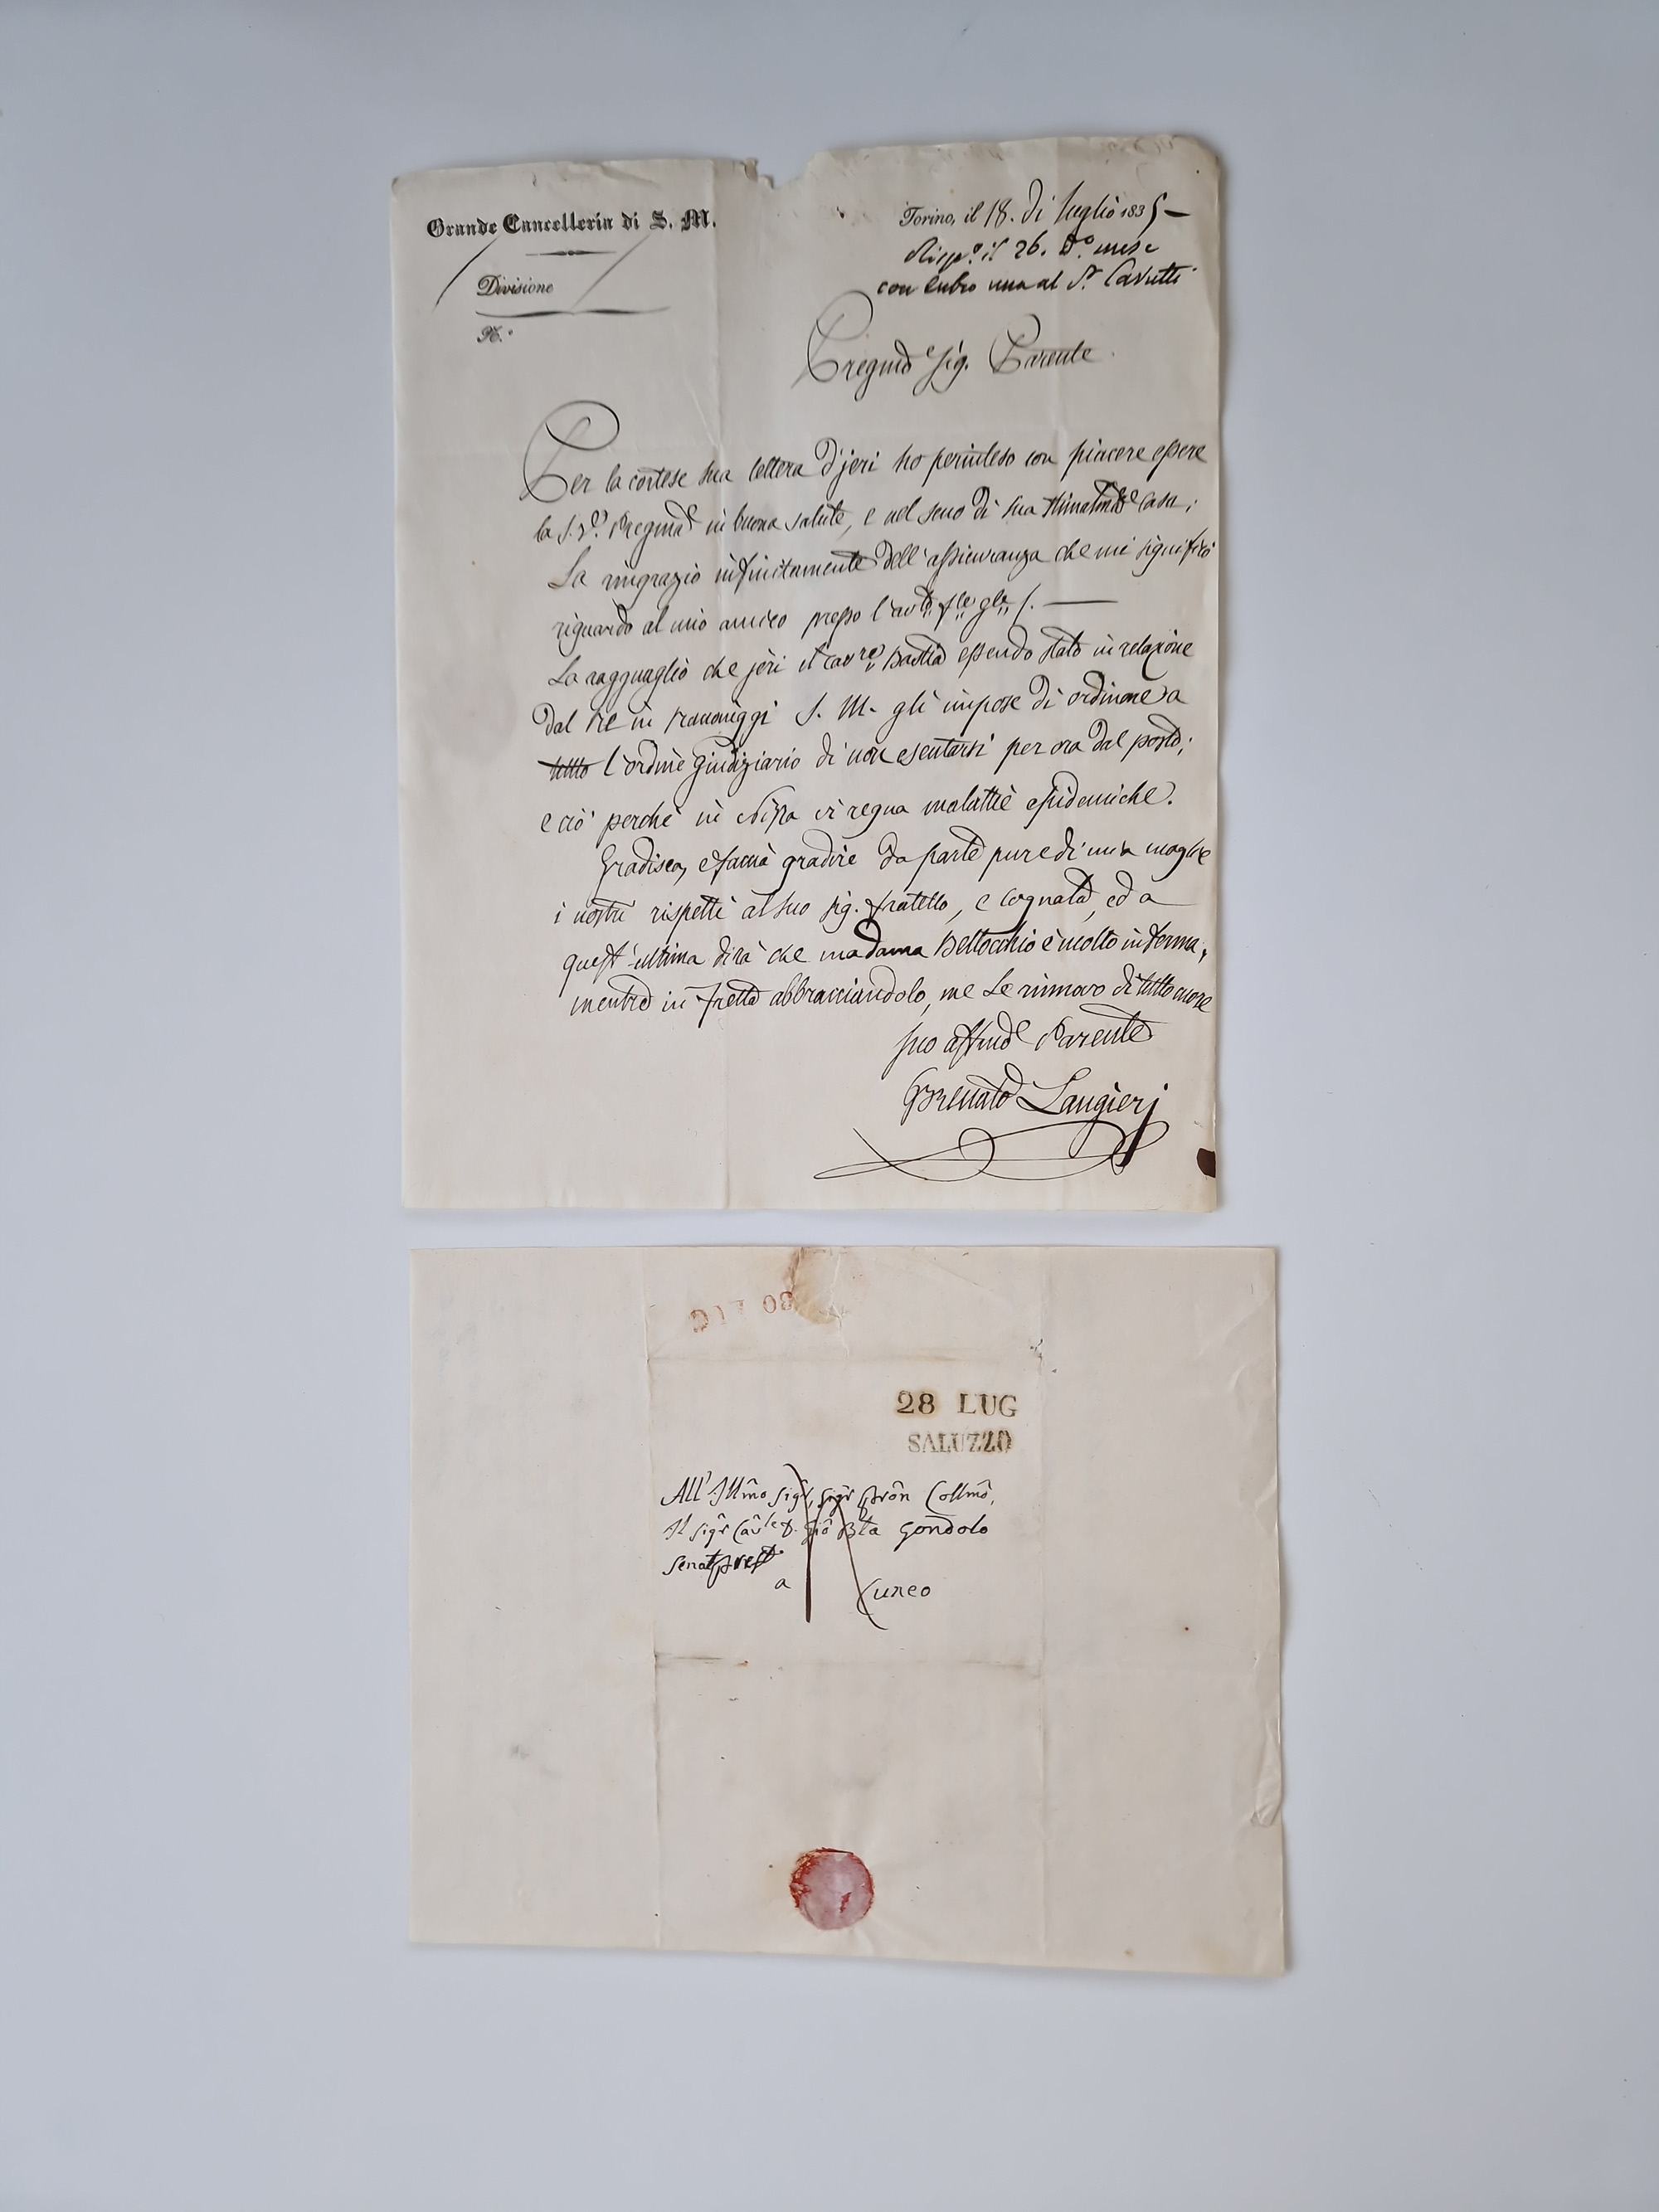 Grande Cancelleria di S. M.
Divisione
N.°
Torino, il 18. di luglio 1835 —
Risp.° il 26. D.° mese
con entro una al S.r Cavutti
Pregmo Sig. Parente
Per la cortese sua lettera d'jeri ho perinteso con piacere essere
la S. V. Pregma in buona salute, e nel seno di sua casa;
La ringrazio infinitamente dell'assicuranza che mi significò
riguardo al mio amico presso l'avto fle gle S. —
La ragguaglio che jeri il cavre essendo stato in relazione
dal Re in S. M. gli impose di ordinare a
tutto l'ordine Giudiziario di non esentarsi per ora dal posto;
e ciò perchè in Nizza vi regna malattie epidemiche.
Gradisca, e faccia gradire da parte pure di mia moglie
i nostri rispetti al suo sig. fratello, e cognata, ed a
quest'ultima dirà che madama Bellocchio è molto inferma,
mentre in fretta abbracciandolo, me Le rinnovo di tutto cuore
suo affmo Parente
Renato Laugieri
30 LUG
28 LUG
SALUZZO
All'Illmo Sigr, Sigr Pron Collmo,
Il Sigr Cavle D. Gio Bta Gondolo
Senat Prest
a Cuneo